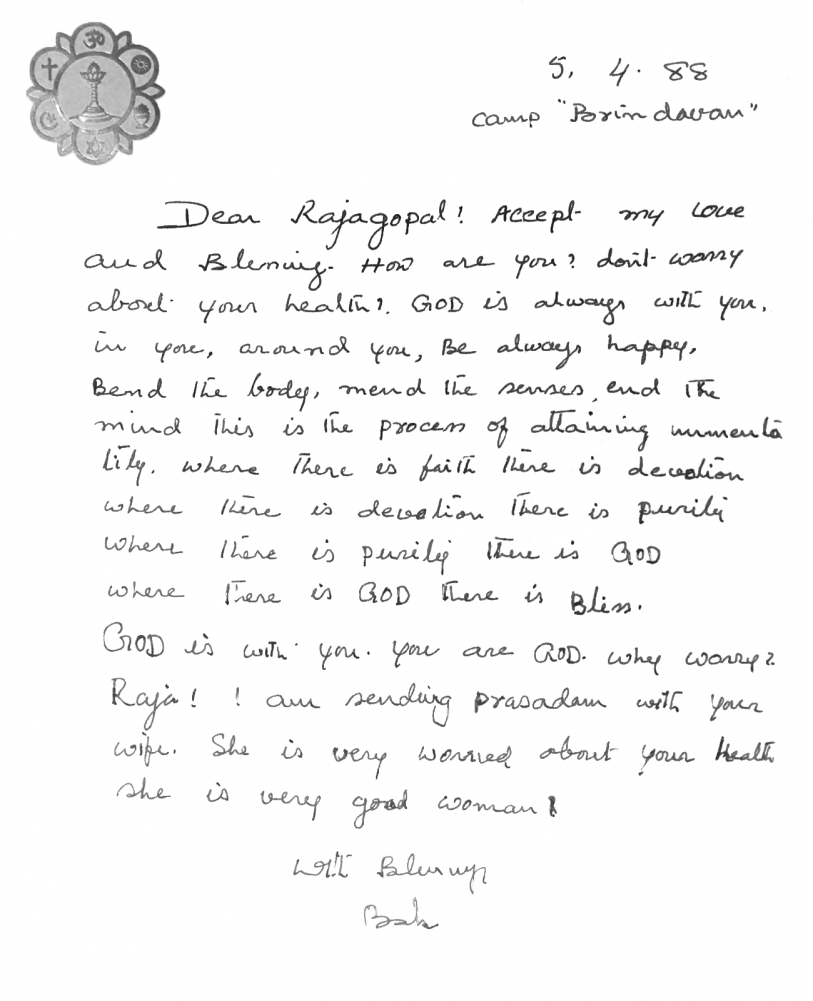 5. 4. 88
camp "Brindavan"
Dear Rajagopal! Accept my love
and Blessing. How are you? don't worry
about your health?. GOD is always with you,
in you, around you, Be always happy.
Bend the body, mend the senses, end the
mind This is the process of attaining immorta
lity. where There is faith there is devotion
where there is devotion There is purity
where there is purity there is GOD
where there is GOD there is Bliss.
GOD is with you. you are GOD. why worry?
Raja! I am sending prasadam with your
wife. She is very worried about your Health
she is very good woman!
with Blessings
Baba